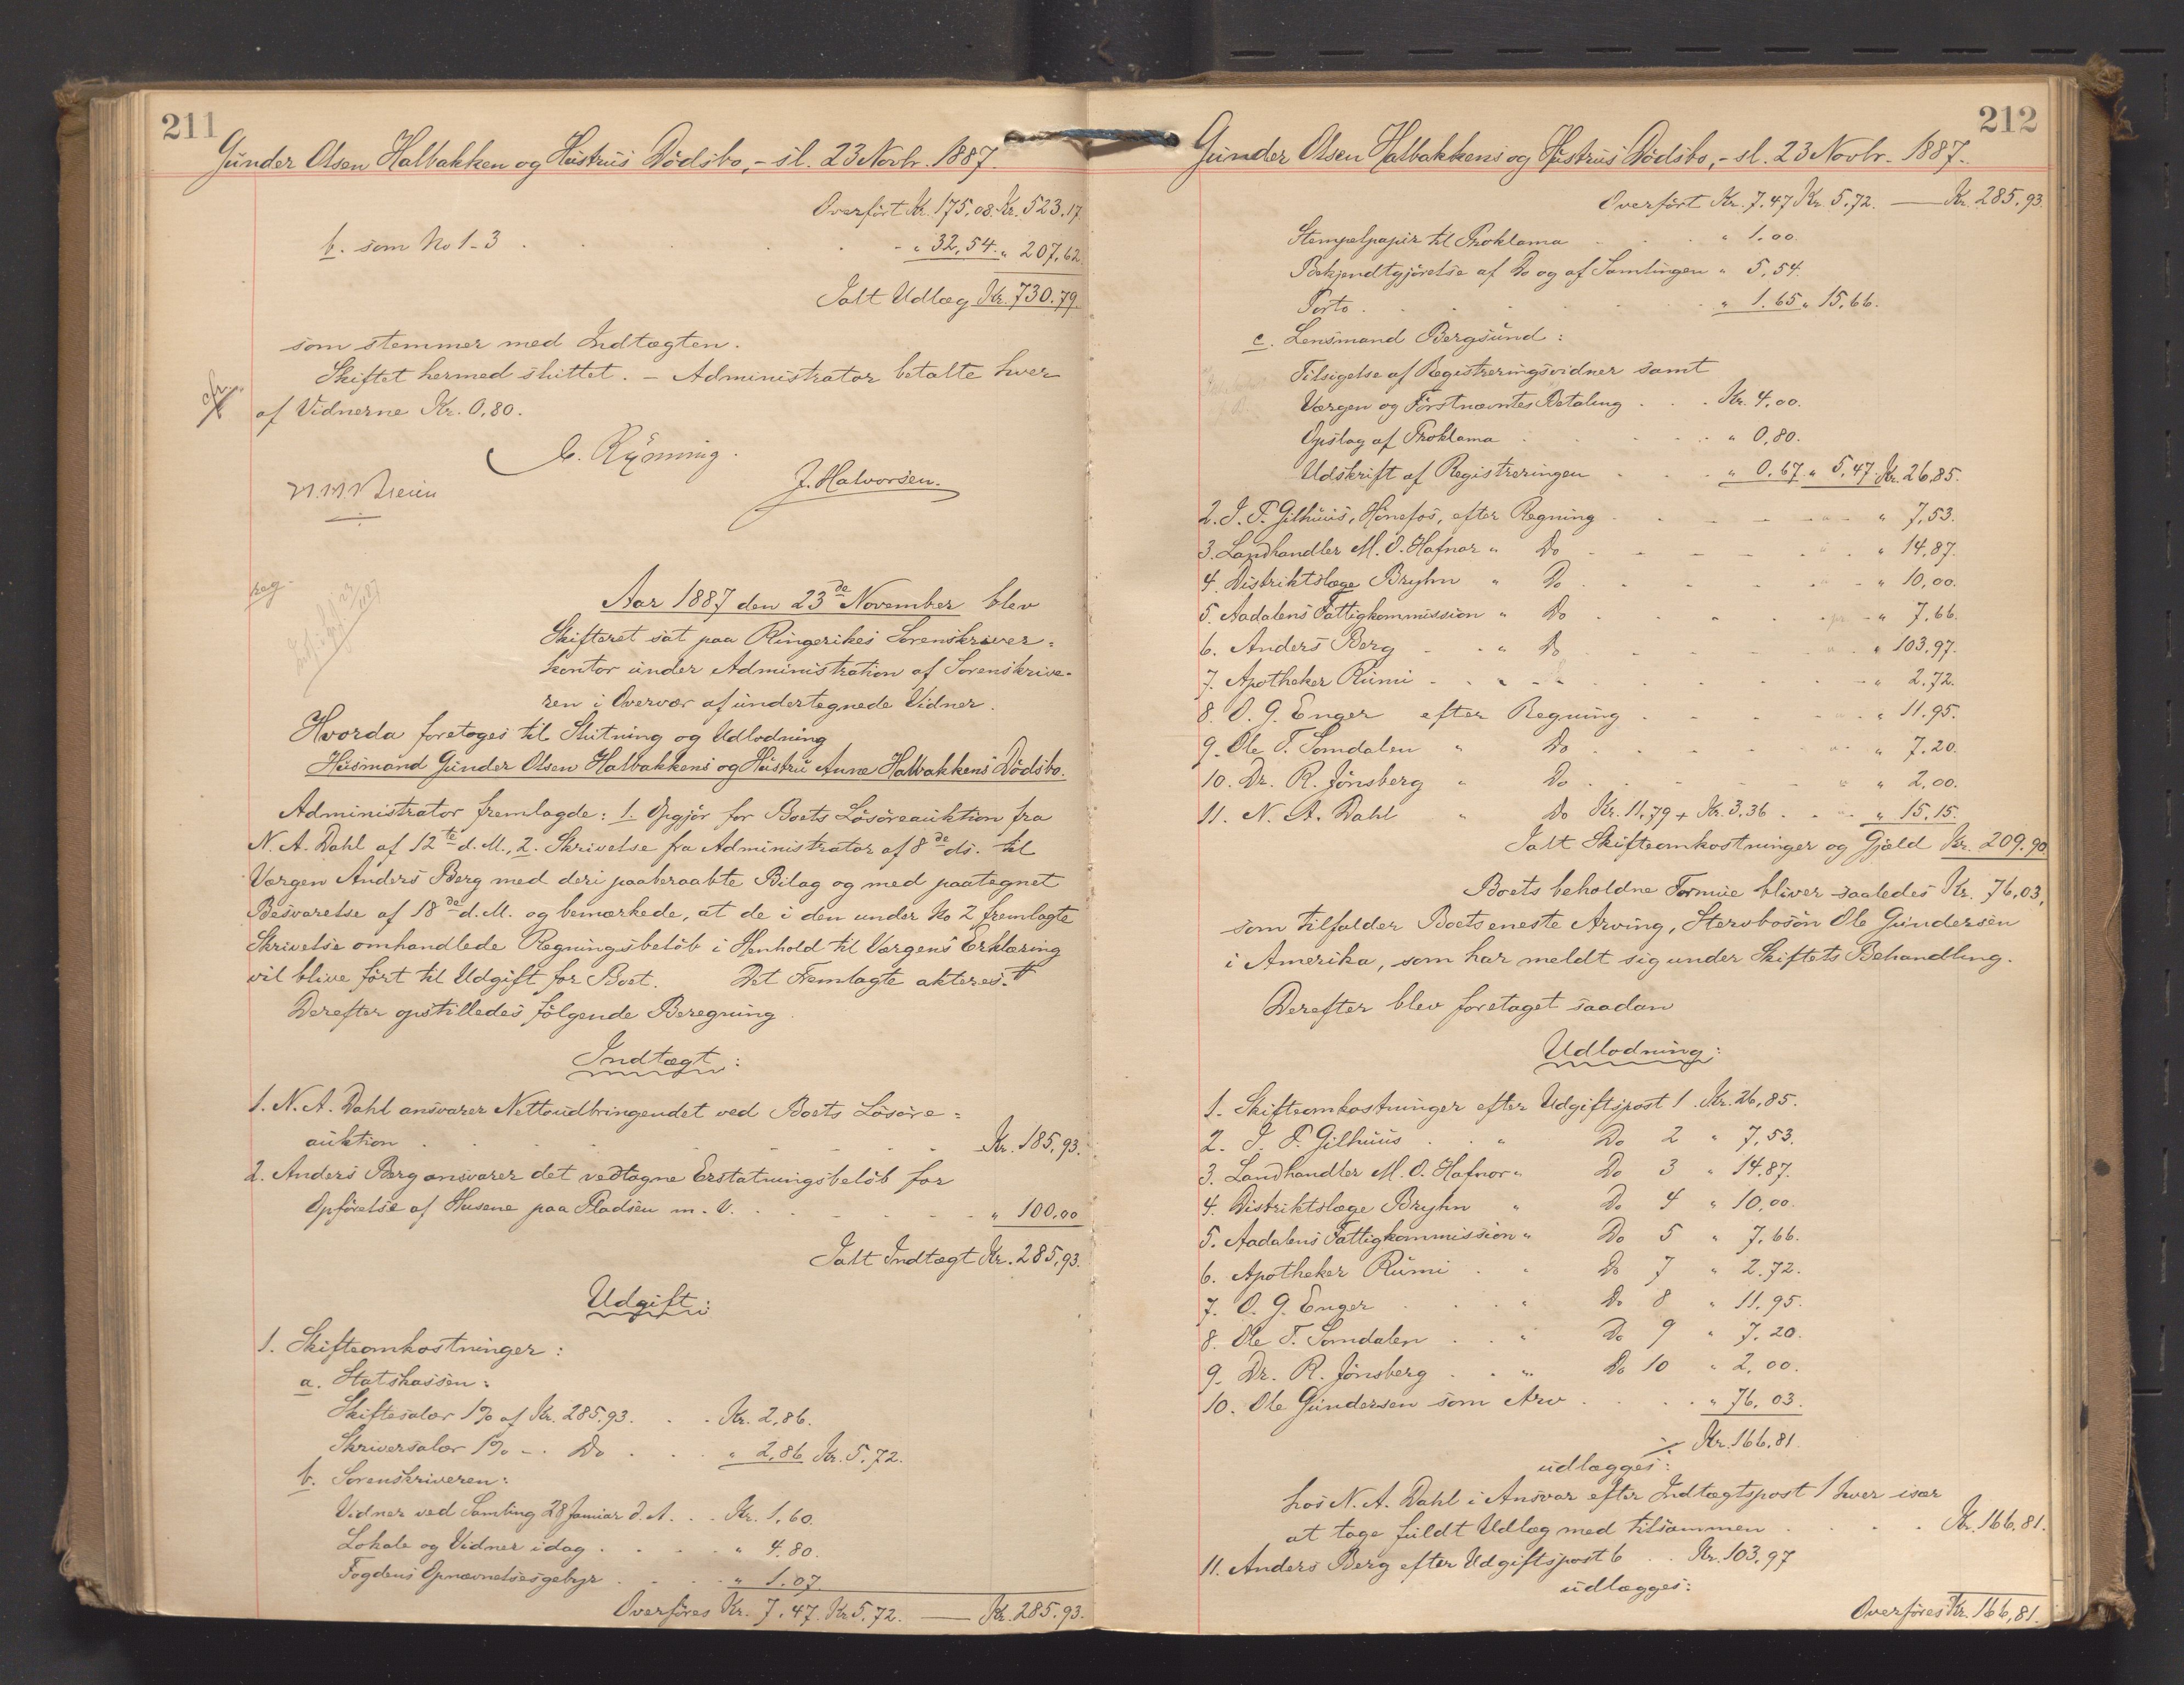 211
Gunder Olsen Halbakken og Hustrus Dödsbo, - sl. 23 Novbr. 1887.
Overfört Kr. 175,08. Kr. 523.17
b. som No 1-3 . . . . . - " 32,54. " 207,62
Ialt Udlæg Kr. 730.79.
som stemmer med Indtægten.
Skiftet hermed sluttet. - Administrator betalte hver
af Vidnerne Kr. 0,80.
C. Ryönning.
J. Halvorsen.
reg.
Aar 1887 den 23de November blev
Skifteret sat paa Ringerikes Sorenskriver=
kontor under Administration af Sorenskrive-
ren i Overvær af undertegnede Vidner.
Hvorda foretoges til Slutning og Udlodning
Husmand Gunder Olsen Halbakkens og Hustru Anne Halbakkens Dödsbo.
Administrator fremlagde: 1. Opgjör for Boets Lösöreauktion fra
N. A. Dahl af 12te d. M., 2. Skrivelse fra Administrator af 8de ds. til
Værgen Anders Berg med deri paaberaabte Bilag og med paategnet
Besvarelse af 18de d. M. og bemærkede, at de i den under No 2 fremlagte
Skrivelse omhandlede Regningsbelöb i Henhold til Værgens Erklæring
vil blive fört til Udgift for Boet. Det Fremlagte akteres.
Derefter opstilledes fölgende Beregning
Indtægt:
1. N. A. Dahl ansvarer Nettoudbringendet ved Boets Lösöre=
auktion . . . . . Kr. 185,93.
2. Anders Berg ansvarer det vedtagne Erstatningsbelöb for
Opförelse af Husene paa Pladsen m. V. . . . " 100,00
Ialt Indtægt Kr. 285,93.
Udgift:
1. Skifteomkostninger:
a. Statskassen:
Skiftesalær 1% af Kr. 285.93. . . Kr. 2,86.
Skriversalær 1% - . Do . . . " 2,86 Kr. 5,72.
b. Sorenskriveren:
Vidner ved Samling 28 Januar d. A. . . Kr. 1,60.
Lokale og Vidner idag . . . . " 4,80.
Fogdens Opnævnelsesgebyr . . . " 1.07
Overföres Kr. 7,47. Kr. 5,72. — Kr. 285.93.
212
Gunder Olsen Halbakkens og Hustrus Dödsbo, - sl. 23 Novbr. 1887.
Overfört Kr. 7.47 Kr. 5,72. — Kr. 285,93.
Stempelpapir til Proklama . . . " 1.00.
Bekjendtgjörelse af Do og af Samlingen " 5,54.
Porto . . . . . " 1.65 " 15,66.
c. Lensmand Bergsund:
Tilsigelse af Registreringsvidner samt
Værgen og Förstnævntes Betaling . . . Kr. 4,00.
Opslag af Proklama . . . . " 0,80.
Udskrift af Registreringen . . . " 0.67 " 5,47. Kr. 26,85.
2. I. F. Gilhuus, Hönefos, efter Regning . . . " 7,53.
3. Landhandler M. O. Hafnor " Do . . . " 14,87.
4. Distriktslæge Bryhn " Do . . . " 10,00.
5. Aadalens Fattigkommission " Do . . . " 7,66.
6. Anders Berg . . " Do . . . " 103,97.
7. Apotheker Rumi . . . . . " 2,72.
8. O. G. Enger efter Regning . . . " 11,95.
9. Ole T. Somdalen " Do . . . " 7.20.
10. Dr. R. Jönsberg " Do . . . " 2,00.
11. N. A. Dahl " Do Kr. 11,79 + Kr. 3,36 . . . " 15,15.
Ialt Skifteomkostninger og Gjæld Kr. 209.90
Boets beholdne Formue bliver saaledes Kr. 76,03,
som tilfalder Boets eneste Arving, Stervbosön Ole Gundersen
i Amerika, som har meldt sig under Skiftets Behandling.
Derefter blev foretaget saadan
Udlodning:
1. Skifteomkostninger efter Udgiftspost 1 . Kr. 26,85.
2. I. F. Gilhuus . . " Do 2 " 7,53.
3. Landhandler M. O. Hafnor " Do 3 " 14,87.
4. Distriktslæge Bryhn " Do 4 " 10,00.
5. Aadalens Fattigkommission " Do 5 " 7,66.
6. Apotheker Rumi . " Do 7 " 2,72.
7. O. G. Enger . . . " Do 8 " 11,95.
8. Ole T. Somdalen . . " Do 9 " 7.20.
9. Dr. R. Jönsberg . . " Do 10 " 2,00.
10. Ole Gundersen som Arv . . . . " 76,03.
Kr. 166,81.
udlægges:
hos N. A. Dahl i Ansvar efter Indtægtspost 1 hver især
at tage fuldt Udlæg med tilsammen . . . . Kr. 166,81.
11. Anders Berg efter Udgiftspost 6 . . Kr. 103,97
udlægges:
Overföres Kr. 166,81.